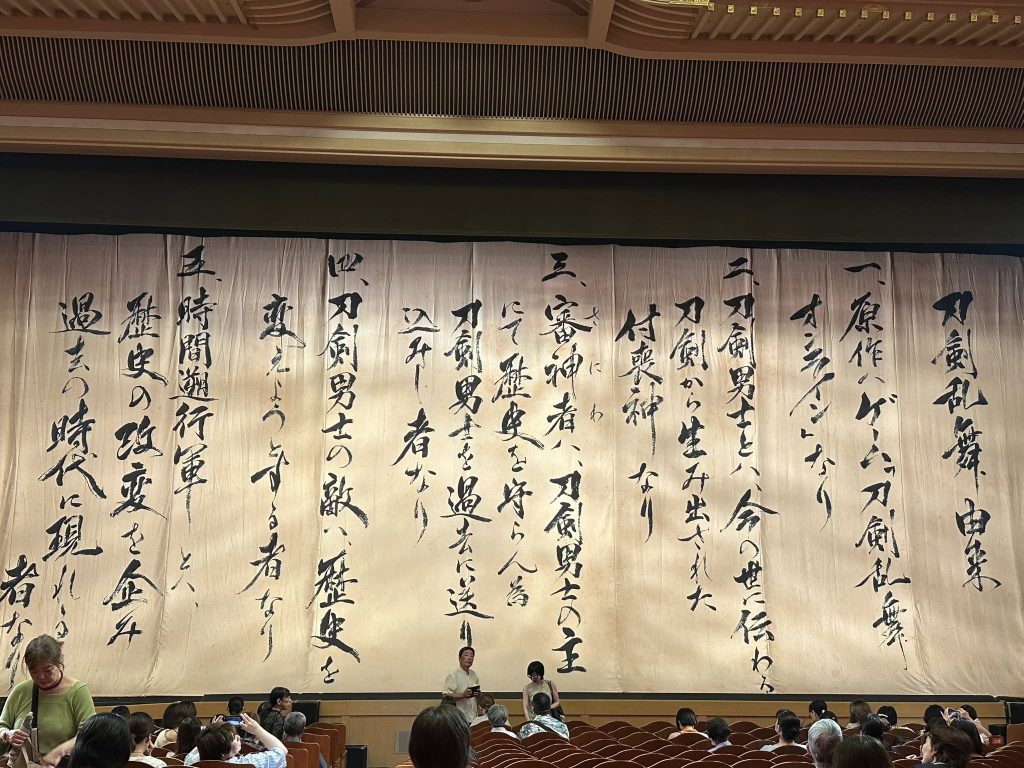 刀剣乱舞 由来
一、原作ハゲーム「刀剣乱舞
オンライン」なり
二、刀剣男士とハ、今の世に伝わる
刀剣から生み出された
付喪神なり
三、審神者ハ、刀剣男士の主
さにわ
にて歴史を守らん為
刀剣男士を過去に送り
込みし者なり
四、刀剣男士の敵ハ、歴史を
変えようとする者なり
五、時間遡行軍とハ、
歴史の改変を企み
過去の時代に現れる
者なり